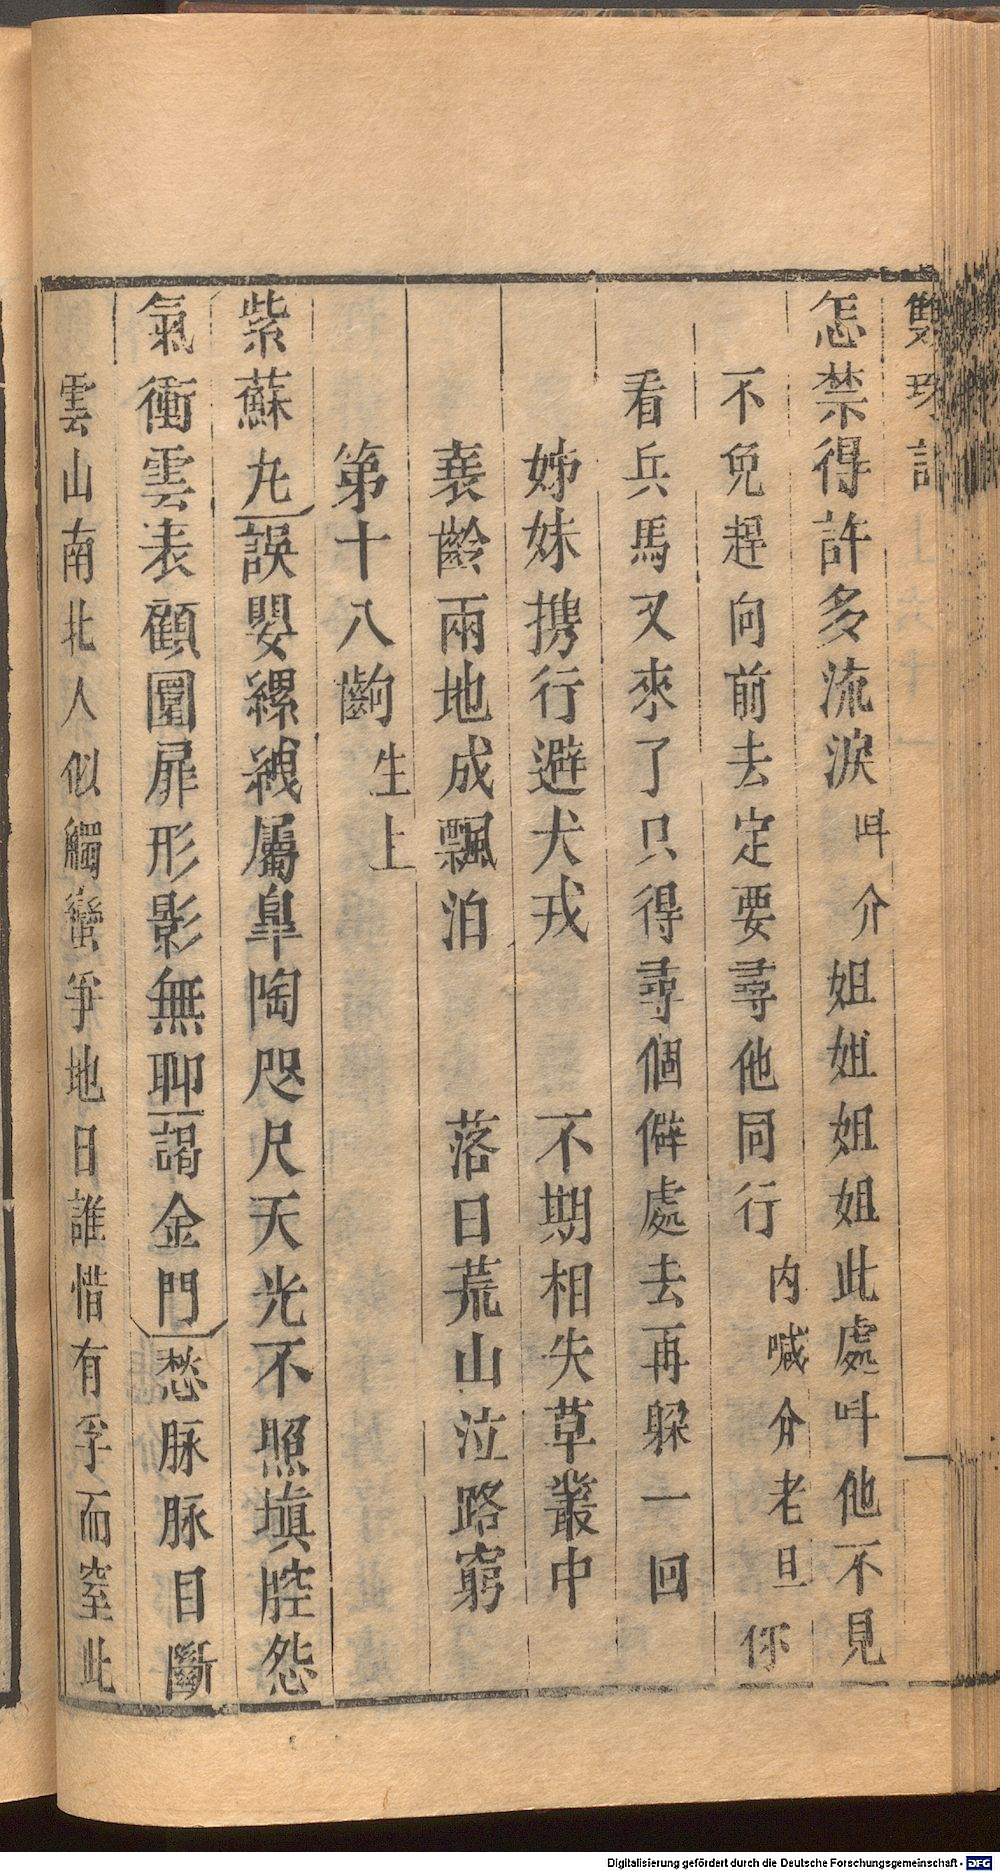 雙珠記
怎禁得許多流淚叫介姐姐姐姐此處叫他不見
不免趕向前去定要尋他同行内喊介老旦你
看兵馬又來了只得尋個僻處去再躱一回
姊妹携行避犬戎　不期相失草叢中
衰齡兩地成飄泊　落日荒山泣路窮
第十八齣生上
紫蘇丸誤嬰縲絏屬臯陶咫尺天光不照塡腔怨
氣衝雲表顧圜扉形影無聊謁金門愁脉脉目斷
雲山南北人似觸蠻爭地日誰惜有孚而窒此
Digitalisierung gefördert durch die Deutsche Forschungsgemeinschaft - DFG